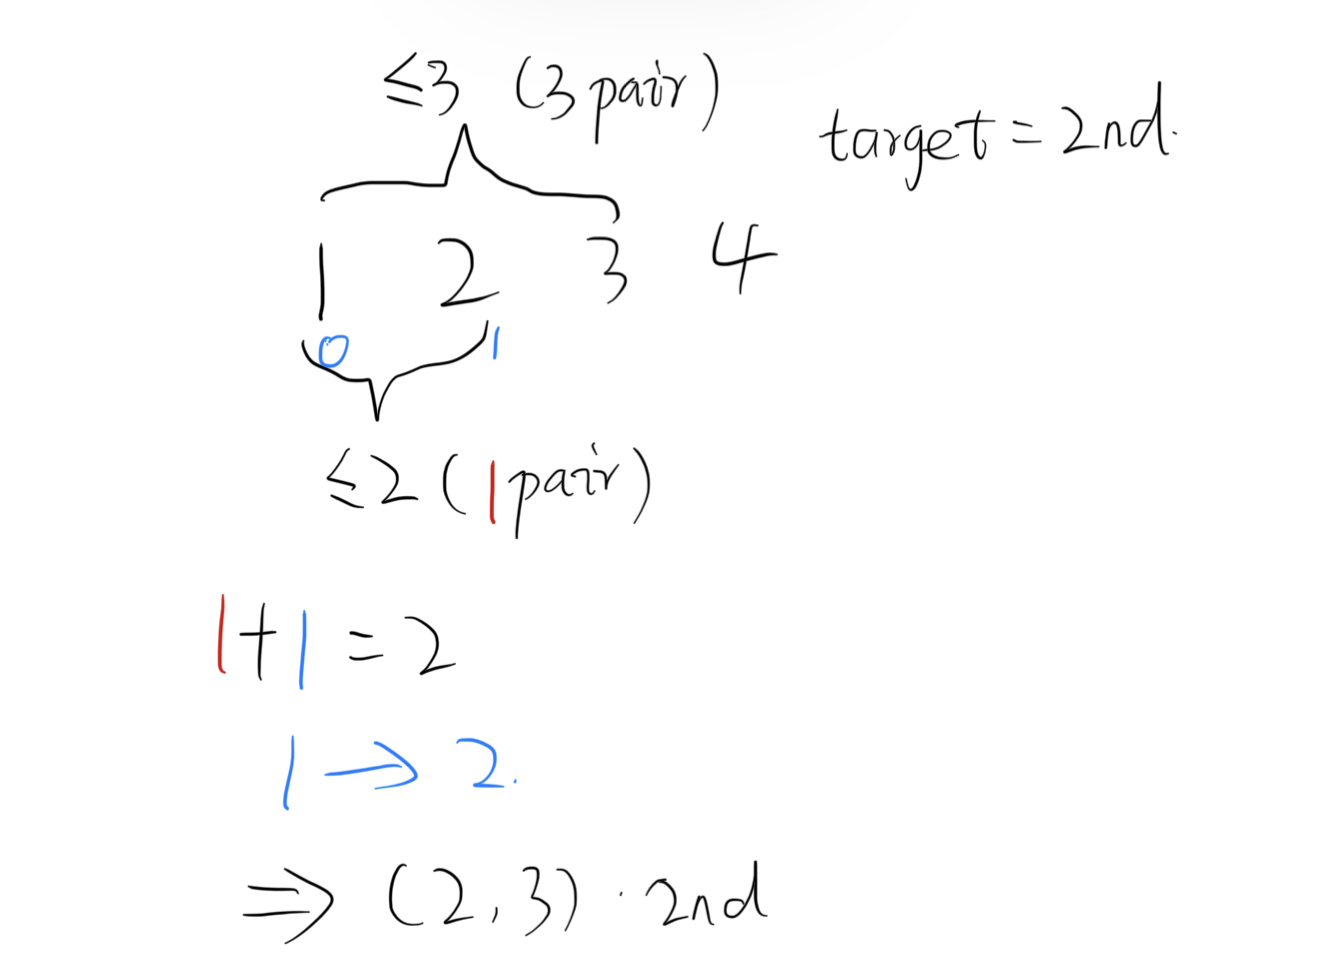 ≤3 (3 pair)
target = 2nd.
1 2 3 4
0 1
≤2 (1 pair)
1+1 = 2
1 → 2.
⇒ (2,3) · 2nd